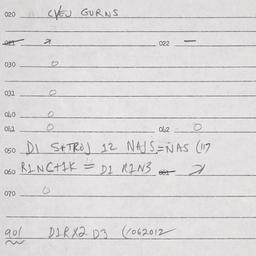 020 CVEJ GURNS
021 022 —
030 0
031 0
040 0
041 0 042 0
050 D1 S+TROJ 12 NAJS = NAS (117
060 R1NC+1K = D1 R1N3 061
070 0
901 D1RX2 D3 (1062012